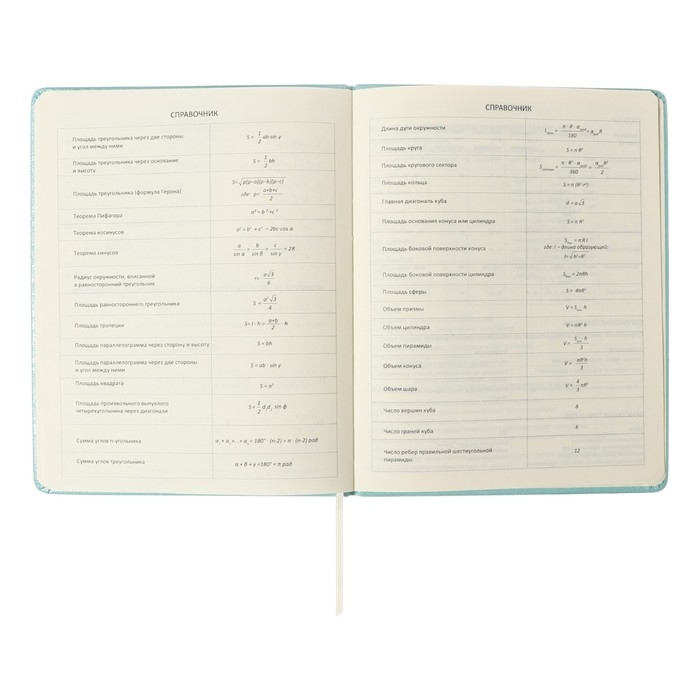 СПРАВОЧНИК
Площадь треугольника через две стороны
и угол между ними
S = 1/2 ab·sin γ
Площадь треугольника через основание
и высоту
S = 1/2 bh
Площадь треугольника (формула Герона)
S=√p(p−a)(p−b)(p−c)
где: p= a+b+c/2
Теорема Пифагора
a² = b² + c²
Теорема косинусов
a² = b² + c² − 2bc·cos α
Теорема синусов
a/sin α = b/sin β = c/sin γ = 2R
Радиус окружности, вписанной
в равносторонний треугольник
r= a√3/6
Площадь равностороннего треугольника
S = a²√3/4
Площадь трапеции
S= l · h = a+b/2 · h
Площадь параллелограмма через сторону и высоту
S = bh
Площадь параллелограмма через две стороны
и угол между ними
S = ab · sin γ
Площадь квадрата
S = a²
Площадь произвольного выпуклого
четырехугольника через диагонали
S = 1/2 d₁d₂ sin ф
Сумма углов n-угольника
α₁ + α₂ +...+ αₙ = 180° · (n-2) = π · (n-2) рад
Сумма углов треугольника
α + β + γ =180° = π рад
СПРАВОЧНИК
Длина дуги окружности
Площадь круга
S = π R²
Площадь кругового сектора
Площадь кольца
S = π (R²-r²)
Главная диагональ куба
d = a√3
Площадь основания конуса или цилиндра
S = π R²
Площадь боковой поверхности конуса
S бок = π R l
где: l – длина образующей;
l=√h²+R²
Площадь боковой поверхности цилиндра
S бок = 2πRh
Площадь сферы
S = 4πR²
Объем призмы
V = S осн h
Объем цилиндра
V = πR² h
Объем пирамиды
V = S осн h/3
Объем конуса
V = πR²h/3
Объем шара
V = 4/3 πR³
Число вершин куба
8
Число граней куба
6
Число ребер правильной шестиугольной
пирамиды
12